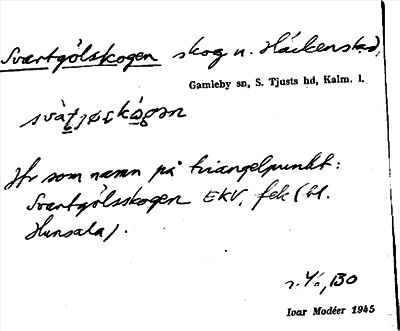 Svartgölskogen skog n. Häckenstad,
Gamleby sn, S. Tjusts hd, Kalm. l.
Hr som namn på triangelpunkt:
Svartgölsskogen EKV, fek (bl.
Hunsala).
BO
Ivar Modéer 1945